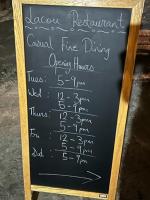 Lacou Restaurant
Casual Fine Dining
Opening Hours
Tues: 5-9pm
Wed: 12-3pm
5-9pm
Thurs: 12-3pm
5-9pm
Fri: 12-3pm
5-9pm
Sat: 5-9pm